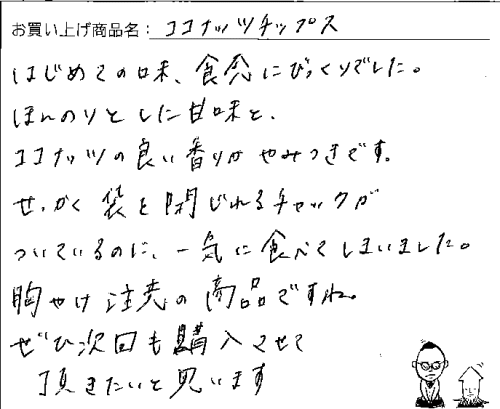 お買い上げ商品名：ココナッツチップス
はじめての味、食感にびっくりでした。
ほんのりとした甘味と、
ココナッツの良い香りがやみつきです。
せっかく袋を閉じれるチャックが
ついているのに、一気に食べてしまいました。
胸やけ注意の商品ですね。
ぜひ次回も購入させて
頂きたいと思います